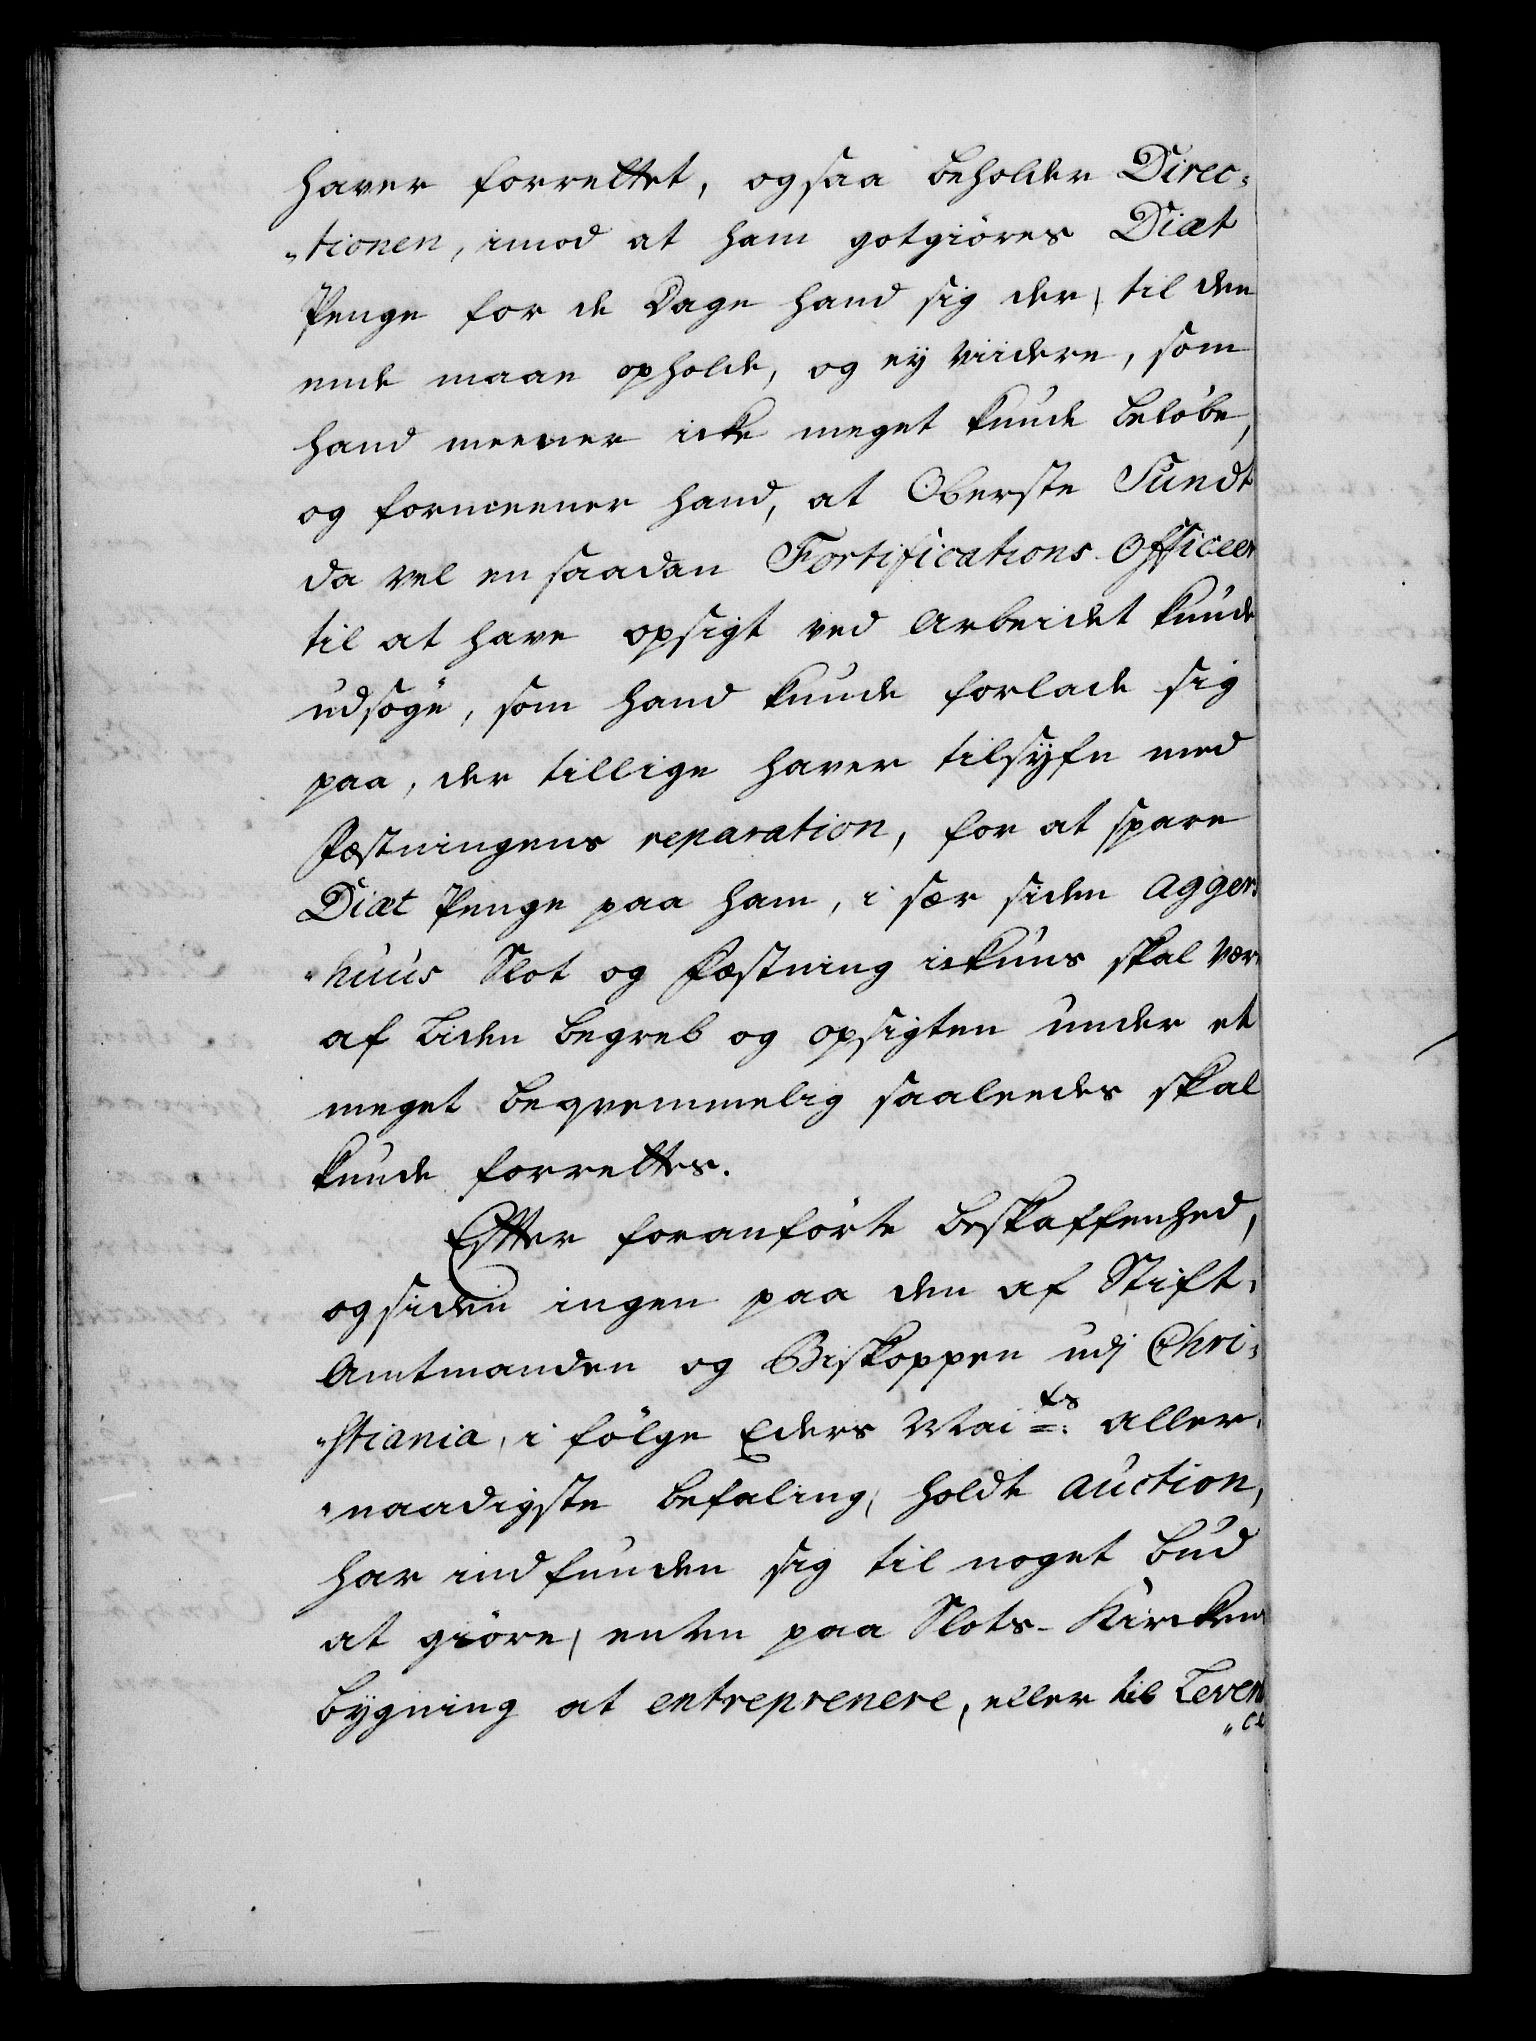 haver forrettet, ogsaa beholder Direc„
„tionen, imod at ham gotgiøres Diæt
Penge for de Dage hand sig der, til den
ende maae opholde, og ey viidere, som
hand meener icke meget kunde beløbe,
og formeener hand, at Oberste Sundt
da vel en saadan Fortifications-Officeer
til at have opsigt ved Arbeidet kunde
udsøge, som hand kunde forlade sig
paa, der tillige haver tilsyfn med
Fæstningens reparation, for at spare
Diæt Penge paa ham, i sær siden Agger„
„huus Slot og Fæstning ickuns skal være
af Liden begreb og opsigten under et
meget beqvemmelig saaleedes skal
kunde forrettes.
Efter foranførte beskaffenhed,
og siden ingen paa den af Stift„
Amtmanden og Biskoppen udj Chri„
„stiania, i følge Eders Maits: aller„
„naadigste befaling, holdte Auction,
har indfunden sig til noget bud
at giøre, enten paa Slots-Kirckens
bygning at entreprenere, eller til Leveren
„ce